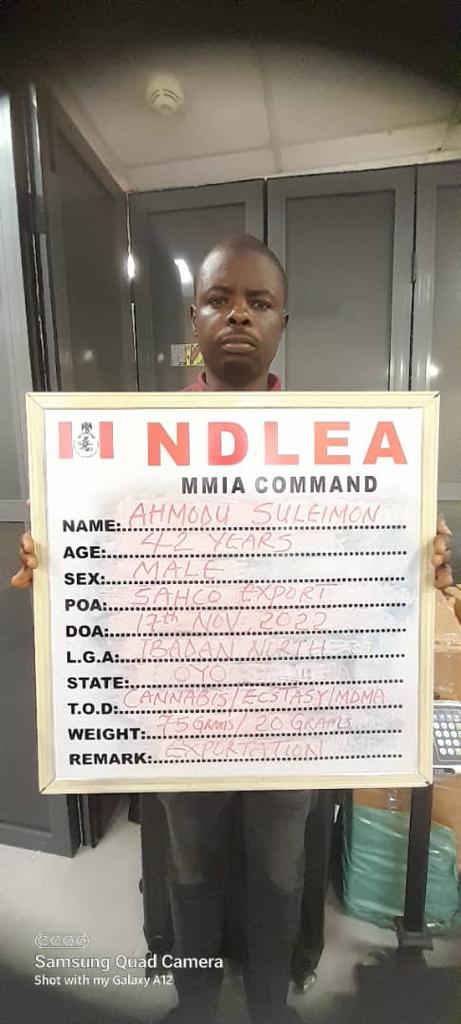 NDLEA
MMIA COMMAND
NAME: AHMODU SULEIMON
AGE: 42 YEARS
SEX: MALE
POA: SAHCO EXPORT
DOA: 17th NOV, 2022
L.G.A: IBADAN NORTH
STATE: OYO
T.O.D: CANNABIS/ECSTASY/MDMA
WEIGHT: 75 GRAMS/ 20 GRAMS
REMARK: EXPORTATION
Samsung Quad Camera
Shot with my Galaxy A12